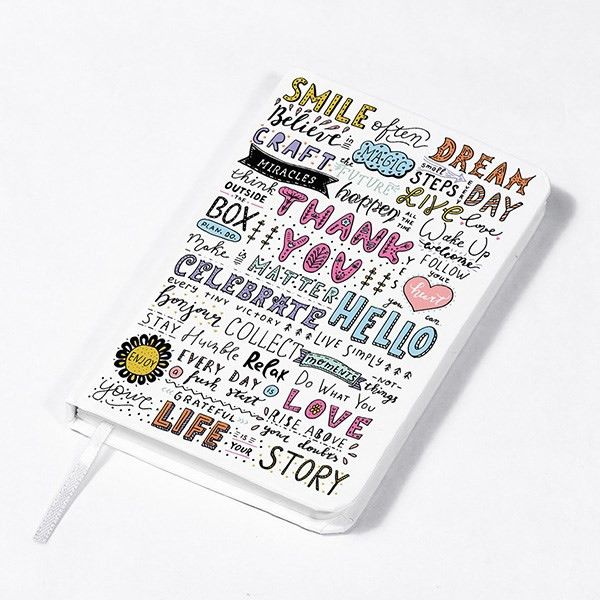 SMILE often DREAM
Believe in MAGIC small STEPS EVERY DAY
CRAFT the FUTURE LIVE love
MIRACLES happen ALL THE TIME Wake Up
think OUTSIDE THE BOX THANK YOU awesome
PLAN. DO. FOLLOW your heart
Make it MATTER HELLO you can
CELEBRATE
every TINY VICTORY LIVE SIMPLY
bonjour COLLECT moments NOT things
STAY Humble Relax Do What You LOVE
ENJOY EVERY DAY is a fresh start
GRATEFUL RISE ABOVE your doubts
LIFE IS YOUR STORY